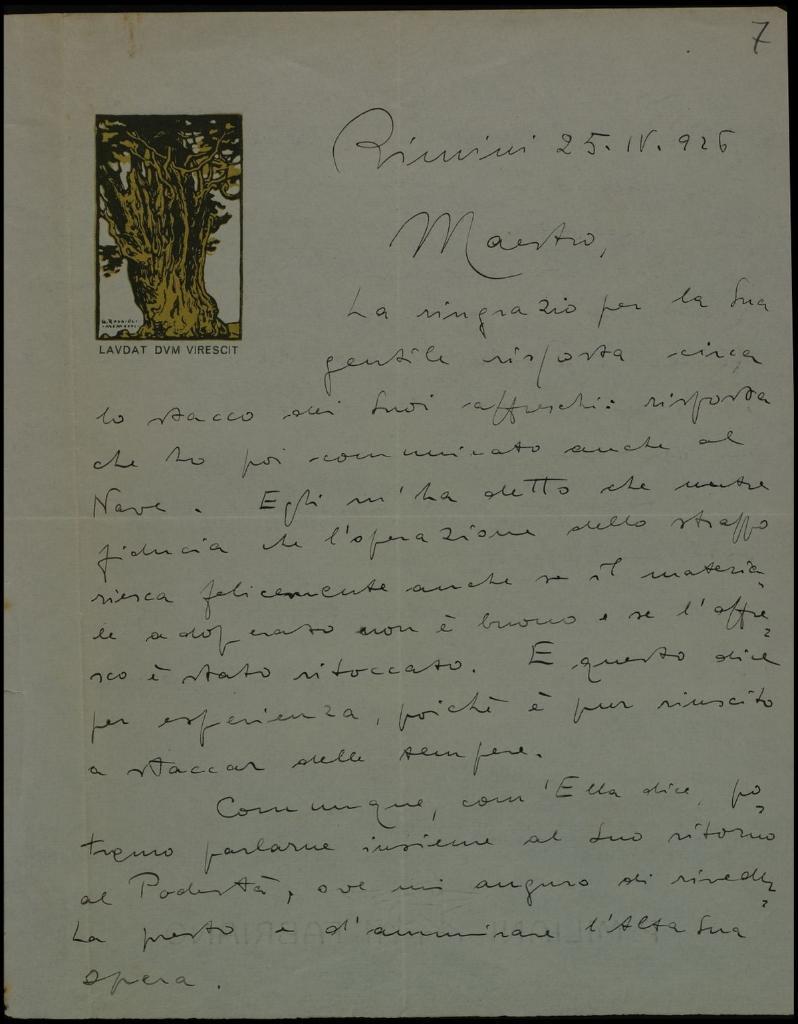 7
Rimini 25.IV.926
Maestro,
La ringrazio per la Sua
gentile risposta circa
lo stacco dei Suoi affreschi: risposta
che ho poi comunicato anche al
Nave. Egli m'ha detto che nutre
fiducia che l'operazione dello strappo
riesca felicemente anche se il materia-
le adoperato non è buono e se l'affre-
sco è stato ritoccato. E questo dice
per esperienza, poichè è pur riuscito
a staccar delle tempere.
Comunque, com'Ella dice, po-
tremo parlarne insieme al Suo ritorno
al Podestà, ove mi auguro di riveder-
La presto e d'ammirare l'Alta Sua
opera.
LAVDAT DVM VIRESCIT